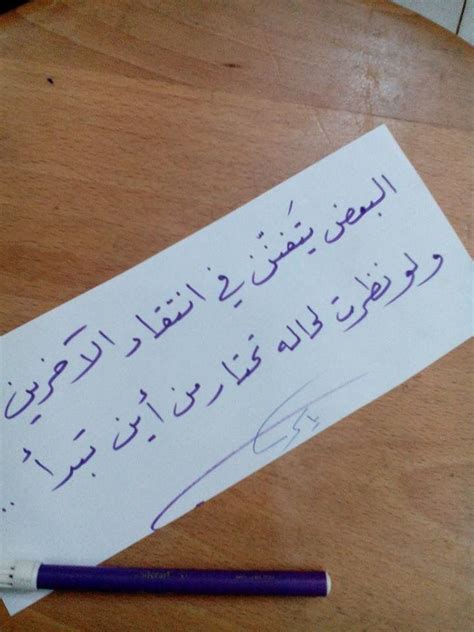 البعض يتَفنّن في انتقاد الآخرين
ولو نظرت لحاله تحتار من أين تبدأ ..